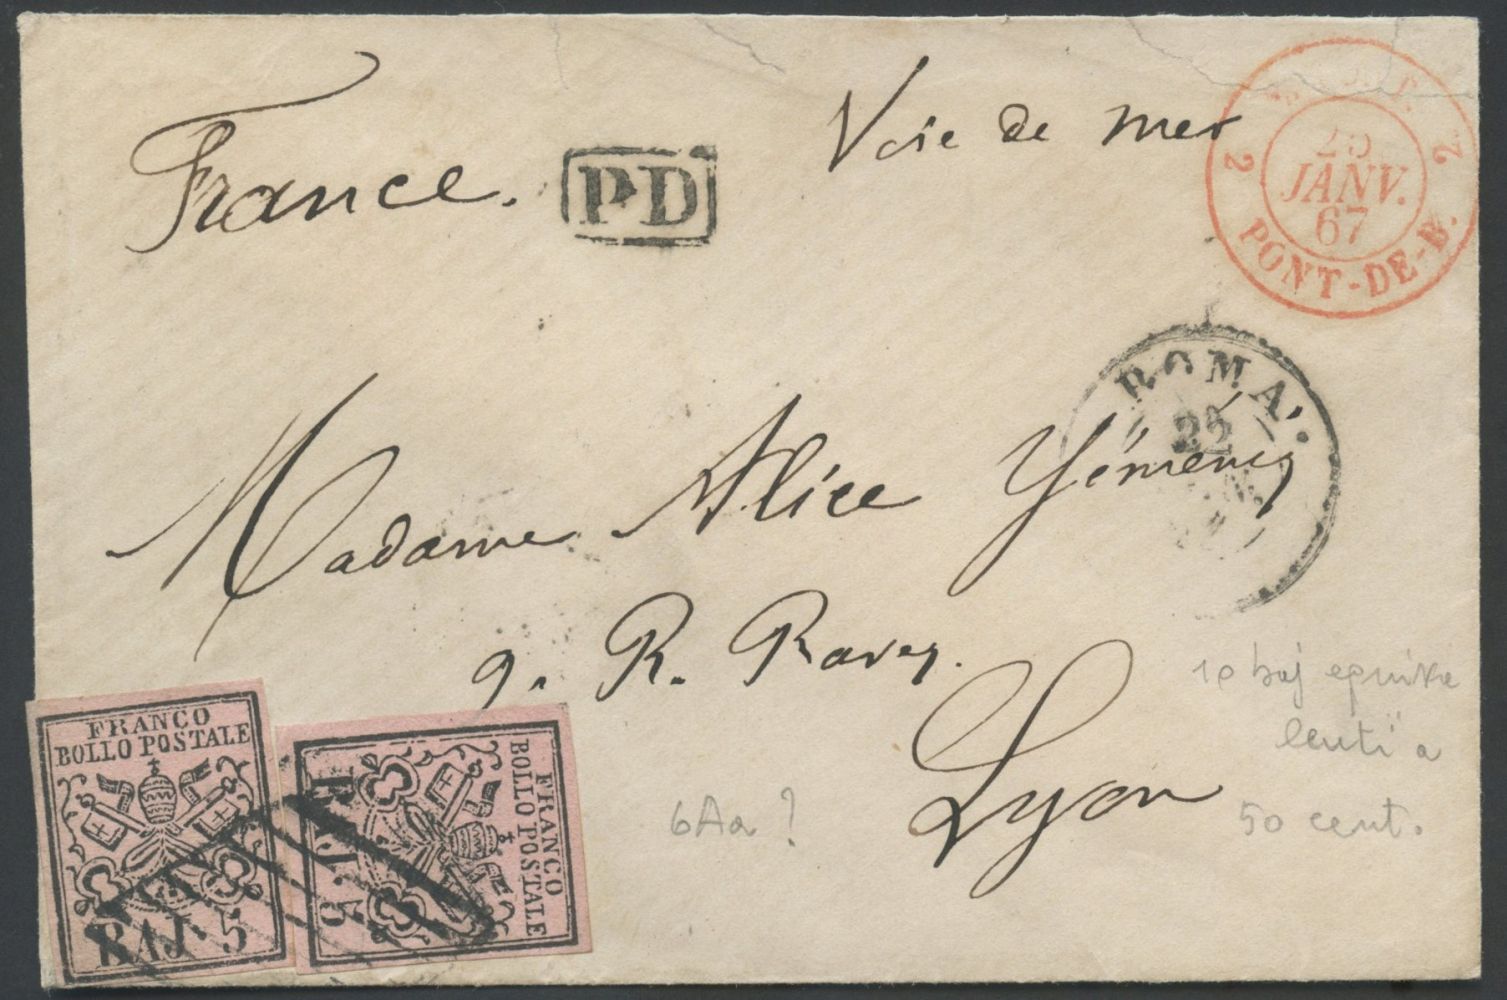 France.
P.D
Voie de mer
25
JANV.
67
2 2
PONT-DE-B.
ROMA.
22
Madame Alice Yéméniz
9. R. Ravez.
Lyon
FRANCO
BOLLO POSTALE
BAJ. 5
FRANCO
BOLLO POSTALE
BAJ. 5
6Aa ?
baj
a
50 cent.